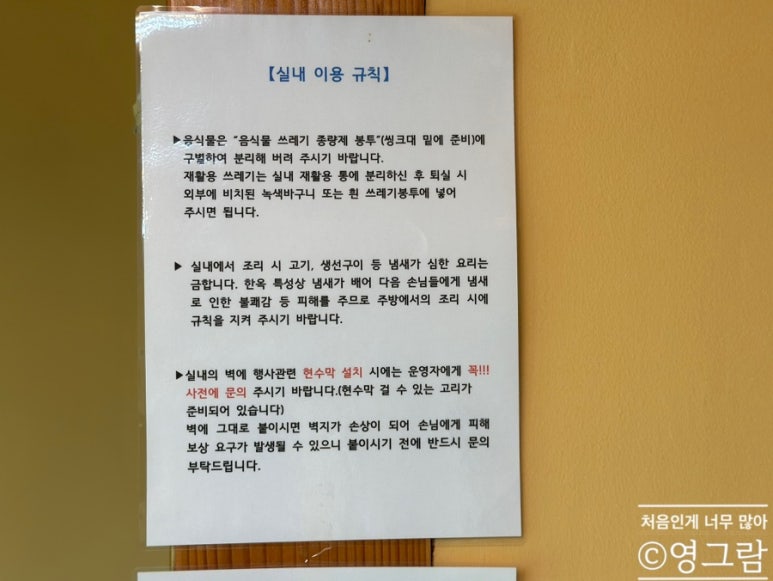 【실내 이용 규칙】
▶음식물은 "음식물 쓰레기 종량제 봉투"(씽크대 밑에 준비)에
구별하여 분리해 버려 주시기 바랍니다.
재활용 쓰레기는 실내 재활용 통에 분리하신 후 퇴실 시
외부에 비치된 녹색바구니 또는 흰 쓰레기봉투에 넣어
주시면 됩니다.
▶ 실내에서 조리 시 고기, 생선구이 등 냄새가 심한 요리는
금합니다. 한옥 특성상 냄새가 배어 다음 손님들에게 냄새
로 인한 불쾌감 등 피해를 주므로 주방에서의 조리 시에
규칙을 지켜 주시기 바랍니다.
▶실내의 벽에 행사관련 현수막 설치 시에는 운영자에게 꼭!!!
사전에 문의 주시기 바랍니다.(현수막 걸 수 있는 고리가
준비되어 있습니다)
벽에 그대로 붙이시면 벽지가 손상이 되어 손님에게 피해
보상 요구가 발생될 수 있으니 붙이시기 전에 반드시 문의
부탁드립니다.
처음인게 너무 많아
©영그람